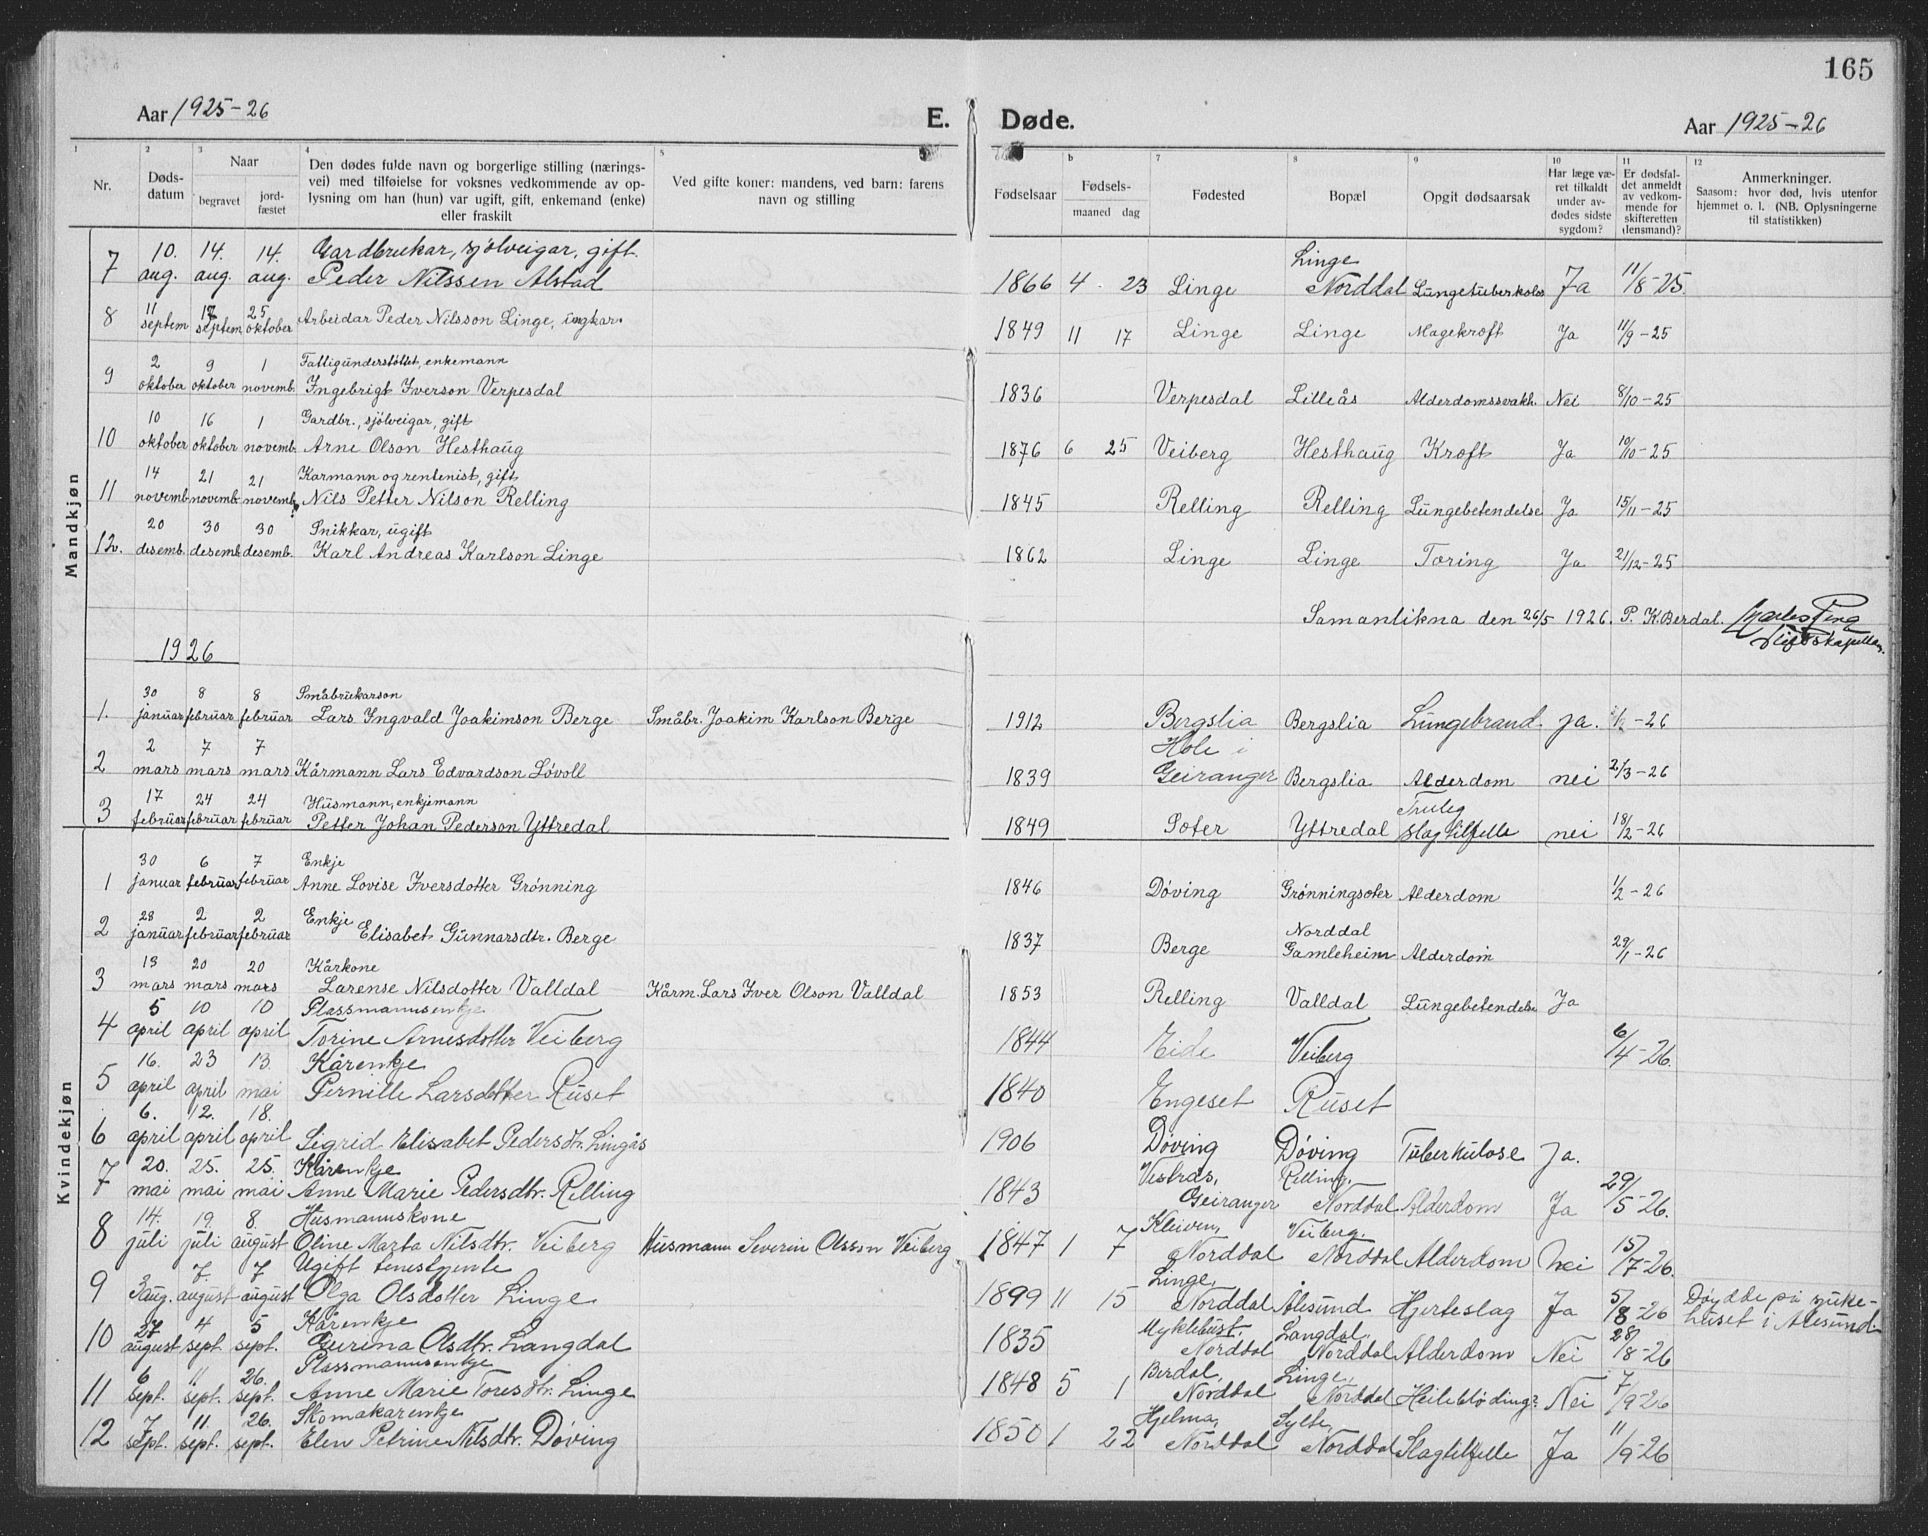 165
Aar 1925-26 E. Døde. Aar 1925-26
1 2 3 4 5 6 7 8 9 10 11 12
Nr. Døds-datum Naar begravet jord-fæstet Den dødes fulde navn og borgerlige stilling (nærings-vei) med tilføielse for voksnes vedkommende av op-lysning om han (hun) var ugift, gift, enkemand (enke) eller fraskilt Ved gifte koner: mandens, ved barn: farens navn og stilling Fødselsaar Fødsels-maaned dag Fødested Bopæl Opgit dødsaarsak Har læge væ-ret tilkaldt under av-dødes sidste sygdom? Er dødsfal-det anmeldt av vedkom-mende for skifteretten (lensmand)? Anmerkninger. Saasom: hvor død, hvis utenfor hjemmet o. l. (NB. Oplysningerne til statistikken)
Mandkjøn
10. 14. 14. Gardbrukar, sjølveigar, gift. Linge
7 aug. aug. aug. Peder Nilssen Alstad 1866 4 23 Linge Norddal Lungetuberkolos Ja 11/8-25.
11 17 25
8 septem septem oktober Arbeidar Peder Nilsson Linge, ungkar. 1849 11 17 Linge Linge Magekræft Ja 11/9-25
2 9 1 Fattigunderstøttet, enkemann
9 oktober oktober novemb. Ingebrigt Iverson Verpesdal 1836 Verpesdal Lilleås Alderdomssvakh. Nei 8/10-25
10 16 1 Gardbr., sjølveigar, gift
10 oktober oktober novemb. Arne Olson Hesthaug 1876 6 25 Veiberg Hesthaug Kræft Ja 19/10-25
14 21 21 Kårmann og rentenist, gift
11 novemb. novemb. novemb. Nils Petter Nilson Relling 1845 Relling Relling Lungebetendelse Ja 15/11-25
20 30 30 Snikkar, ugift
12. desemb. desemb. desemb. Karl Andreas Karlson Linge 1862 Linge Linge Tæring Ja 21/12-25
Samanlikna den 26/5 1926. P. K. Berdal.
1926
30 8 8 Småbrukarson
1. januar februar februar Lars Ingvald Joakimson Berge Småbr. Joakim Karlson Berge 1912 Bergslia Bergslia Lungebrand. ja. /2-26
2 7 7 Hole i
2 mars mars mars Kårmann Lars Edvardson Løvoll 1839 Geiranger Bergslia Alderdom nei 2/3-26
17 24 24 Husmann, enkjemann Truleg
3 februar februar februar Petter Johan Pederson Yttredal 1849 Sæter Yttredal slagtilfelle nei 18/2-26
Kvindekjøn
30 6 7 Enkje
1 januar februar februar Anne Lovise Iversdotter Grønning 1846 Døving Grønningsæter Alderdom 1/2-26
28 2 2 Enkje Norddal
2 januar februar februar Elisabet Gunnarsdtr. Berge 1837 Berge Gamleheim Alderdom 29/1-26
13 20 20 Kårkone
3 mars mars mars Larense Nilsdotter Valldal Kårm. Lars Iver Olson Valldal 1853 Relling Valldal Lungebetendelse Ja
5 10 10 Plassmannsenkje
4 april april april Torine Arnesdotter Veiberg 1844 Eide Veiberg 6/4-26.
16. 23 13. Kårenkje
5 april april mai Pernille Larsdotter Ruset 1840 Engeset Ruset
6. 12. 18.
6 april april april Sigrid Elisabet Pedersdtr. Lingås 1906 Døving Døving Tuberkulose Ja.
20. 25. 25. Kårenkje Vestrås, Relling.
7 mai mai mai Anne Marie Pedersdtr. Relling 1843 Geiranger Norddal Alderdom Ja 29/5-26.
14. 19. 8. Husmannskone Kleiven, Veiberg.
8 juli juli august Oline Marta Nilsdtr. Veiberg Husmann Severin Olsson Veiberg 1847 1 7 Norddal Norddal Alderdom Nei 15/7-26.
7. 7 Ugift tenestjente Linge,
9 3 aug. august august Olga Olsdotter Linge 1899 11 15 Norddal Ålesund Hjerteslag Ja 5/8-26 Døydde på sjuke-huset i Ålesund.
27 4 5 Kårenkje Myklebust, Langdal,
10 august sept. sept. Gurina Olsdtr. Langdal 1835 Norddal Norddal Alderdom Nei 28/8-26
6 11 26. Plassmannsenkje Berdal, Linge,
11 sept. sept. sept. Anne Marie Toresdtr. Linge 1848 5 1 Norddal Norddal Heilebløding? Nei 7/9-26
7 11. 26. Skomakarenkje Hjelma, Sylte,
12 sept. sept. sept. Elen Petrine Nilsdtr. Døving 1850 1 22 Norddal Norddal Slagtilfelle Ja 11/9-26